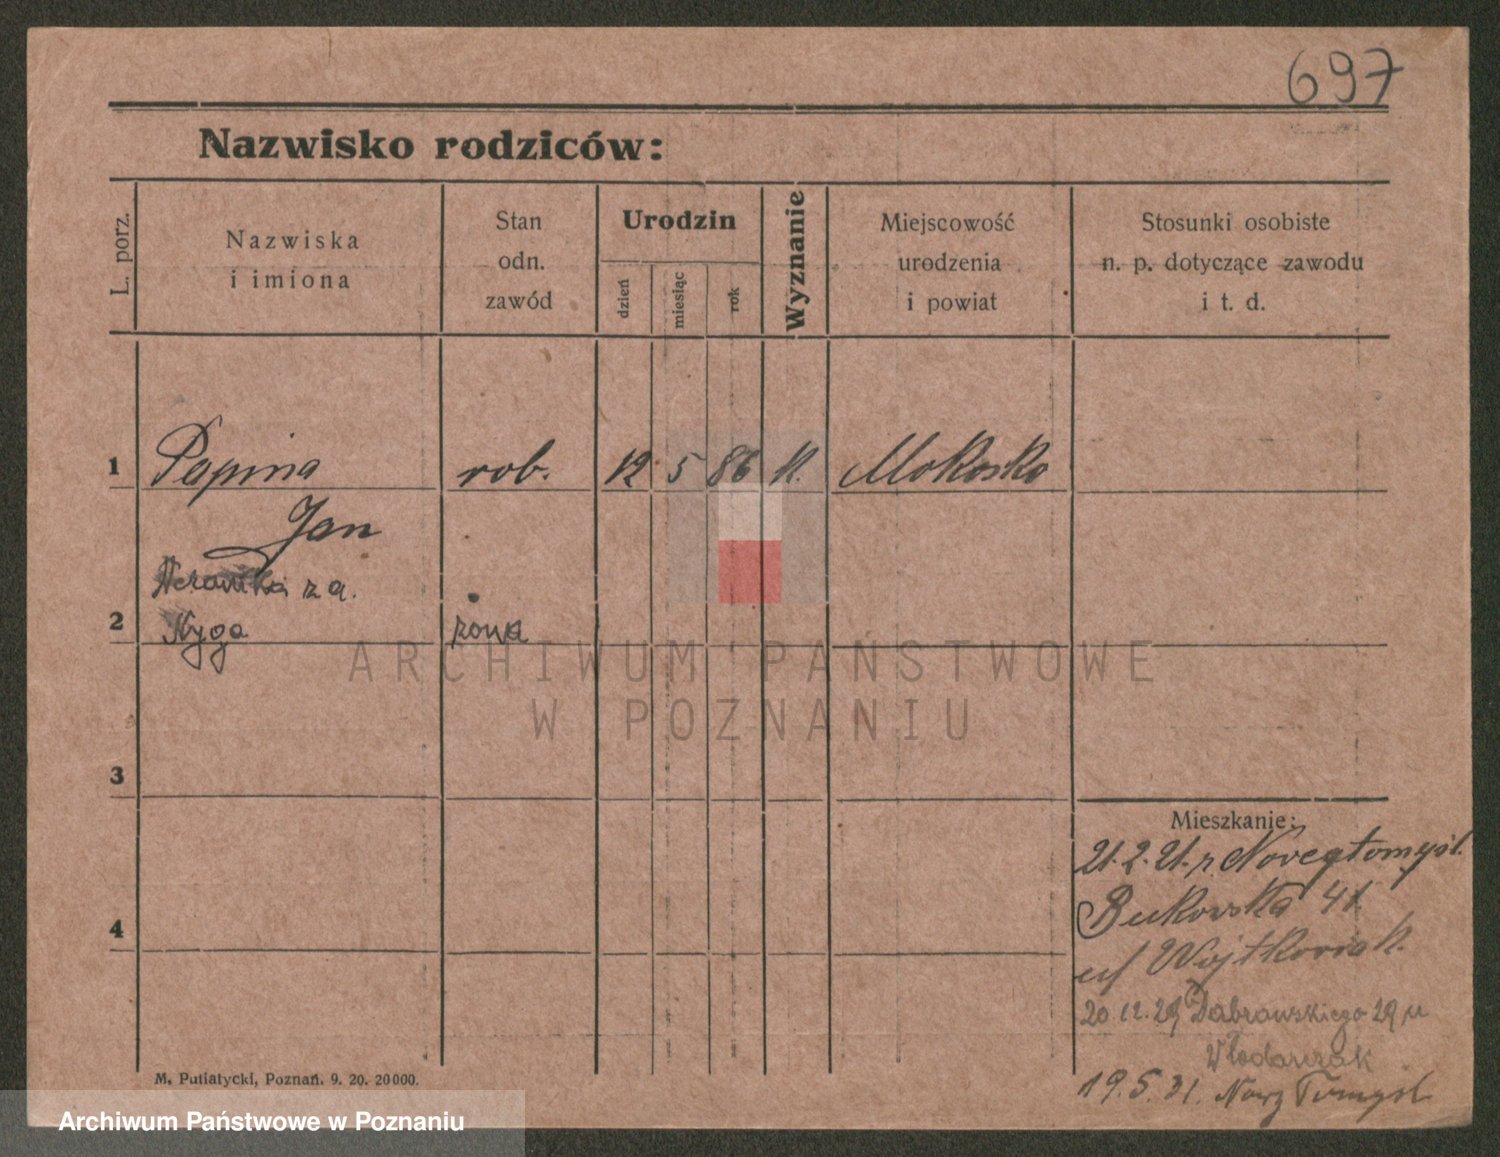 697
Nazwisko rodziców:
L. porz.
Nazwiska
i imiona
Stan
odn.
zawód
Urodzin
dzień
miesiąc
rok
Wyznanie
Miejscowość
urodzenia
i powiat
Stosunki osobiste
n. p. dotyczące zawodu
i t. d.
1 Papina rob. 12 5 86 k. Mokosko
Jan
z a.
2
3
ARCHIWUM PAŃSTWOWE
W POZNANIU
Mieszkanie:
21.2.21. Novegtomyśl.
Bukowska 41
4
u/ Wojtkowiak.
20.12.29 Dabrowskiego 29 u
Włodarczak
19.5.31. Nowy Tomyśl
M. Putiatycki, Poznań. 9. 20. 20000.
Archiwum Państwowe w Poznaniu